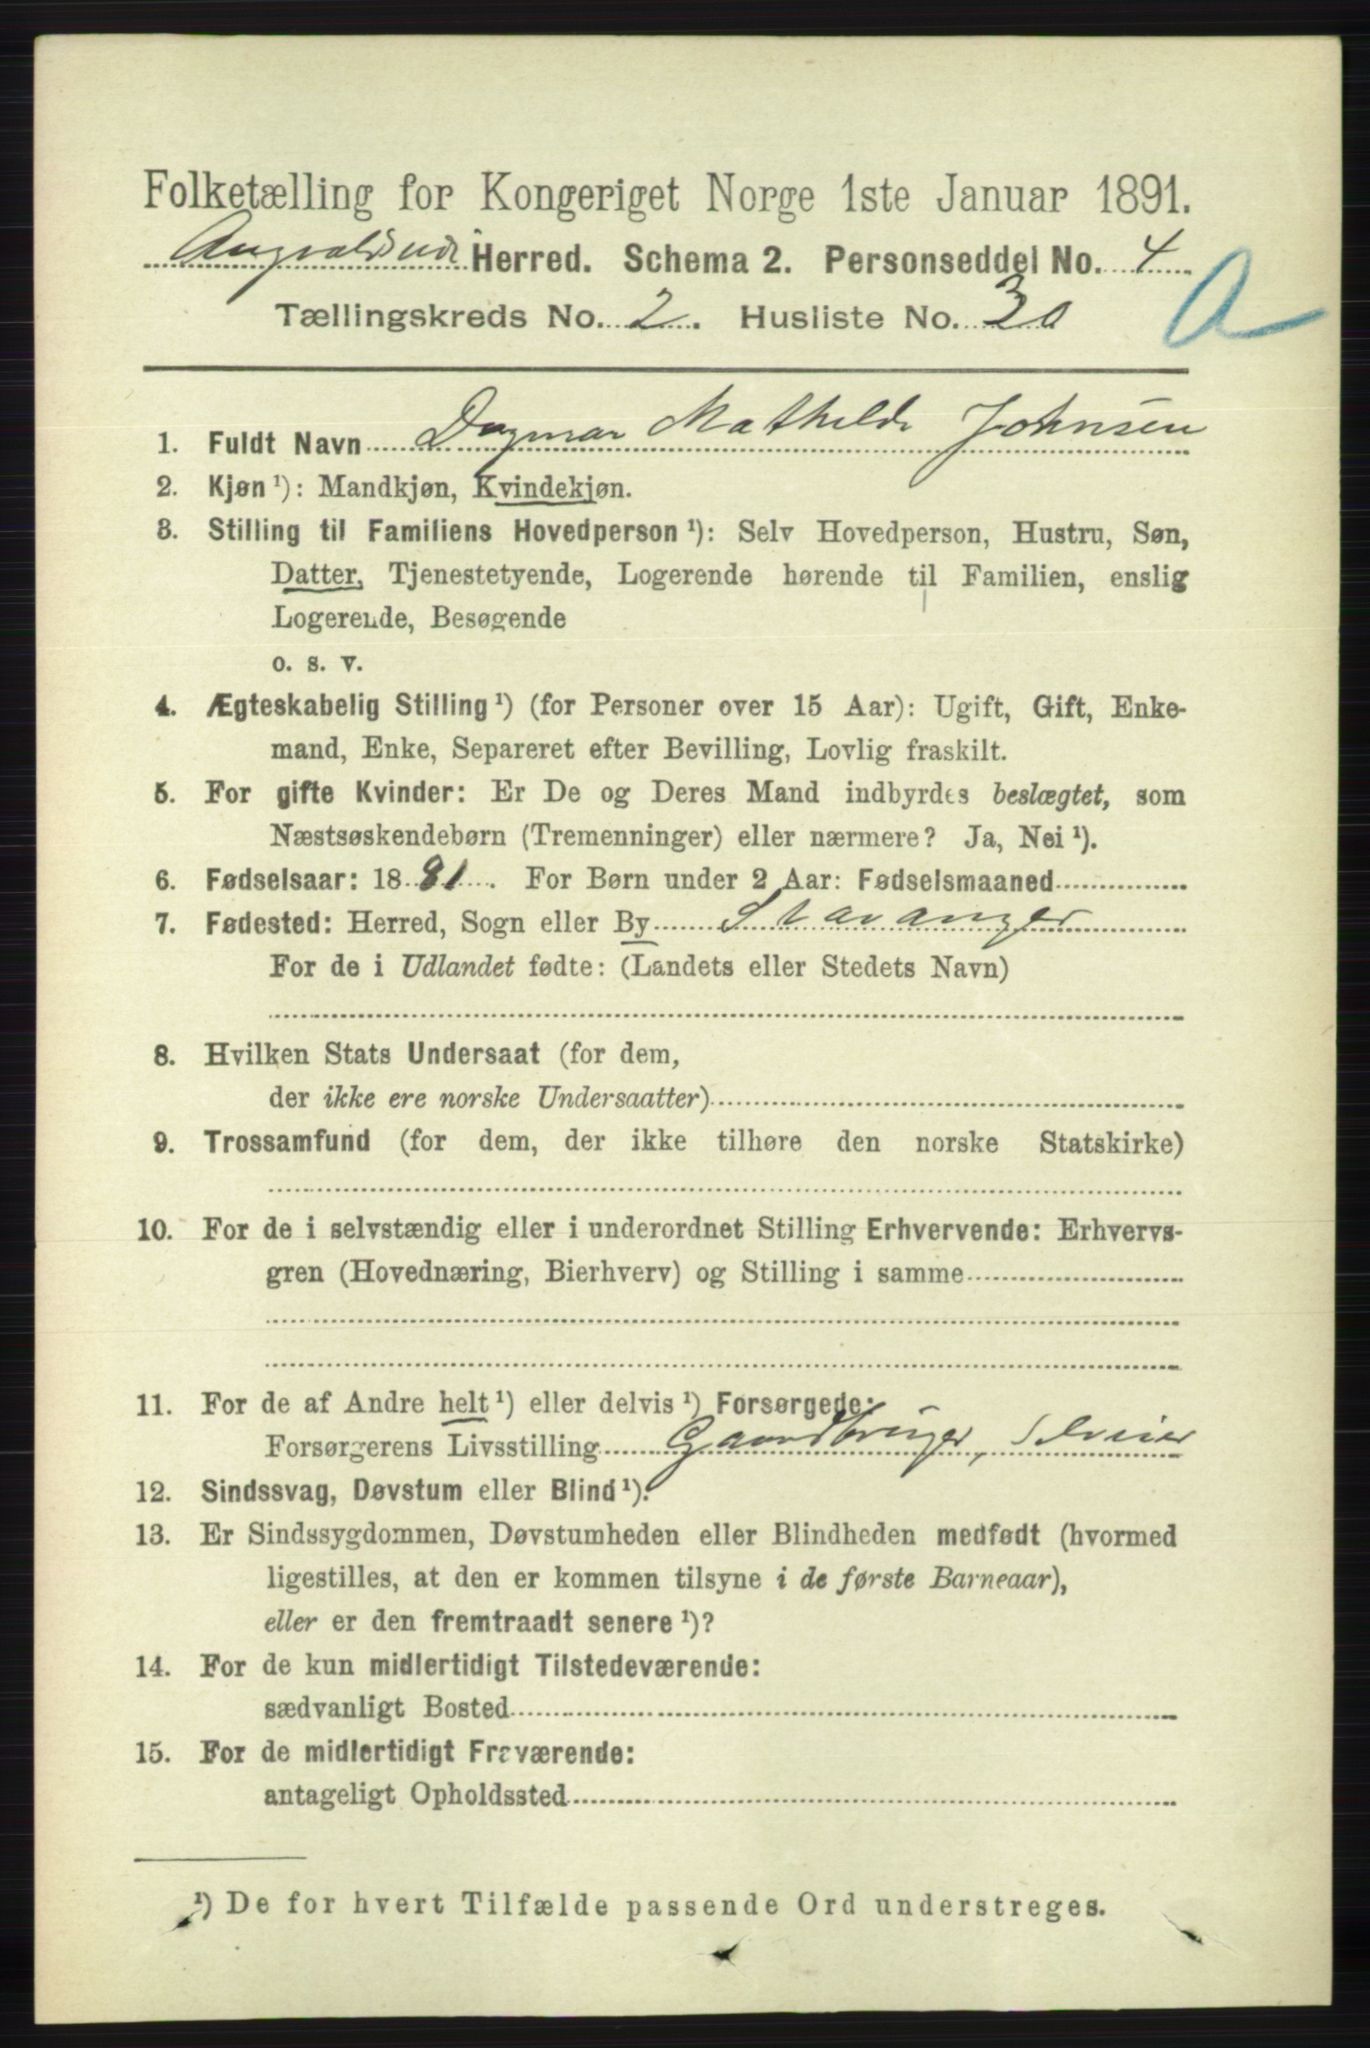 Folketælling for Kongeriget Norge 1ste Januar 1891.
Herred. Schema 2. Personseddel No. 4
A
Tællingskreds No. 2. Husliste No. 30
1. Fuldt Navn Dagmar Mathilde Johnsen
2. Kjøn ¹): Mandkjøn, Kvindekjøn.
3. Stilling til Familiens Hovedperson ¹): Selv Hovedperson, Hustru, Søn,
Datter, Tjenestetyende, Logerende hørende til Familien, enslig
Logerende, Besøgende
o. s. v.
4. Ægteskabelig Stilling ¹) (for Personer over 15 Aar): Ugift, Gift, Enke-
mand, Enke, Separeret efter Bevilling, Lovlig fraskilt.
5. For gifte Kvinder: Er De og Deres Mand indbyrdes beslægtet, som
Næstsøskendebørn (Tremenninger) eller nærmere? Ja, Nei ¹).
6. Fødselsaar: 1881. For Børn under 2 Aar: Fødselsmaaned
7. Fødested: Herred, Sogn eller By Stavanger
For de i Udlandet fødte: (Landets eller Stedets Navn)
8. Hvilken Stats Undersaat (for dem,
der ikke ere norske Undersaatter)
9. Trossamfund (for dem, der ikke tilhøre den norske Statskirke)
10. For de i selvstændig eller i underordnet Stilling Erhvervende: Erhvervs-
gren (Hovednæring, Bierhverv) og Stilling i samme
11. For de af Andre helt ¹) eller delvis ¹) Forsørgede:
Forsørgerens Livsstilling Gaardbruger, Selveier
12. Sindssvag, Døvstum eller Blind ¹).
13. Er Sindssygdommen, Døvstumheden eller Blindheden medfødt (hvormed
ligestilles, at den er kommen tilsyne i de første Barneaar),
eller er den fremtraadt senere ¹)?
14. For de kun midlertidigt Tilstedeværende:
sædvanligt Bosted
15. For de midlertidigt Fraværende:
antageligt Opholdssted
¹) De for hvert Tilfælde passende Ord understreges.